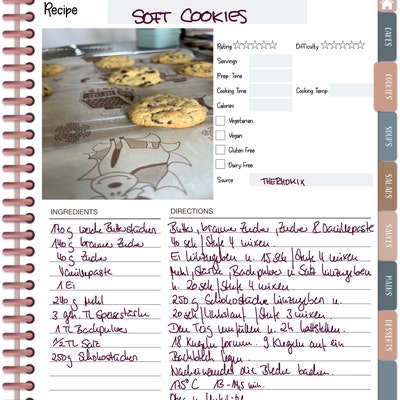 Recipe
SOFT COOKIES
Rating
Difficulty
Servings
Prep. Time
Cooking Time
Cooking Temp.
Calories
Vegetarian
Vegan
Gluten Free
Dairy Free
Source
THERMOMIX
CAKES
COOKIES
SOUPS
SALADS
SAUCES
MAINS
DESSERTS
INGREDIENTS
170 g weiche Butterstückchen
140 g brauner Zucker
40 g Zucker
Vanillepaste
1 Ei
240 g Mehl
3 TL Speisestärke
1 TL Backpulver
1/2 TL Salz
250g Schokostückchen
DIRECTIONS
Butter, brauner Zucker, Zucker & Vanillepaste
40 sek / Stufe 4 mixen.
Ei hinzugeben u. 15 sek / Stufe 4 mixen.
Mehl, Stärke, Backpulver u. Salz hinzugeben
u. 20 sek / Stufe 4 mixen.
250 g Schokostücke hinzugeben u.
20 sek / Linkslauf / Stufe 3 mixen.
Den Teig umfüllen u. 2h kaltstellen.
18 Kugeln formen. 9 Kugeln auf ein
Backblech legen.
Nacheinander die Bleche backen.
175°C 13-14,5 min.